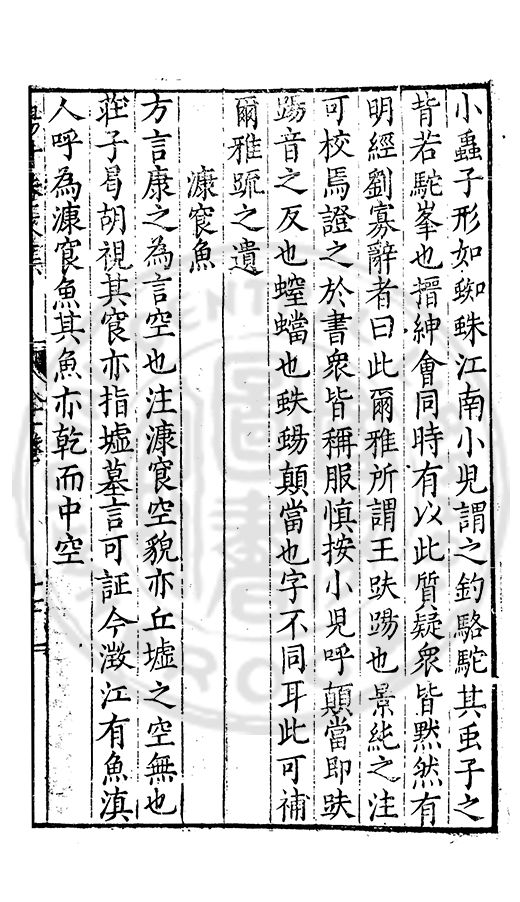 小蟲子形如蜘蛛江南小兒謂之釣駱駝其虫子之
背若駝峯也搢紳會同時有以此質疑衆皆默然有
明經劉寡辭者曰此爾雅所謂王蚨蝪也景純之注
可校焉證之於書衆皆稱服愼按小兒呼顚當即蚨
蝪音之反也螳蟷也蚨蝪顚當也字不同耳此可補
爾雅疏之遺
漮㝗魚
方言康之為言空也注漮㝗空貌亦丘墟之空無也
莊子曷胡視其㝗亦指墟墓言可証今澂江有魚滇
人呼為漮㝗魚其魚亦乾而中空